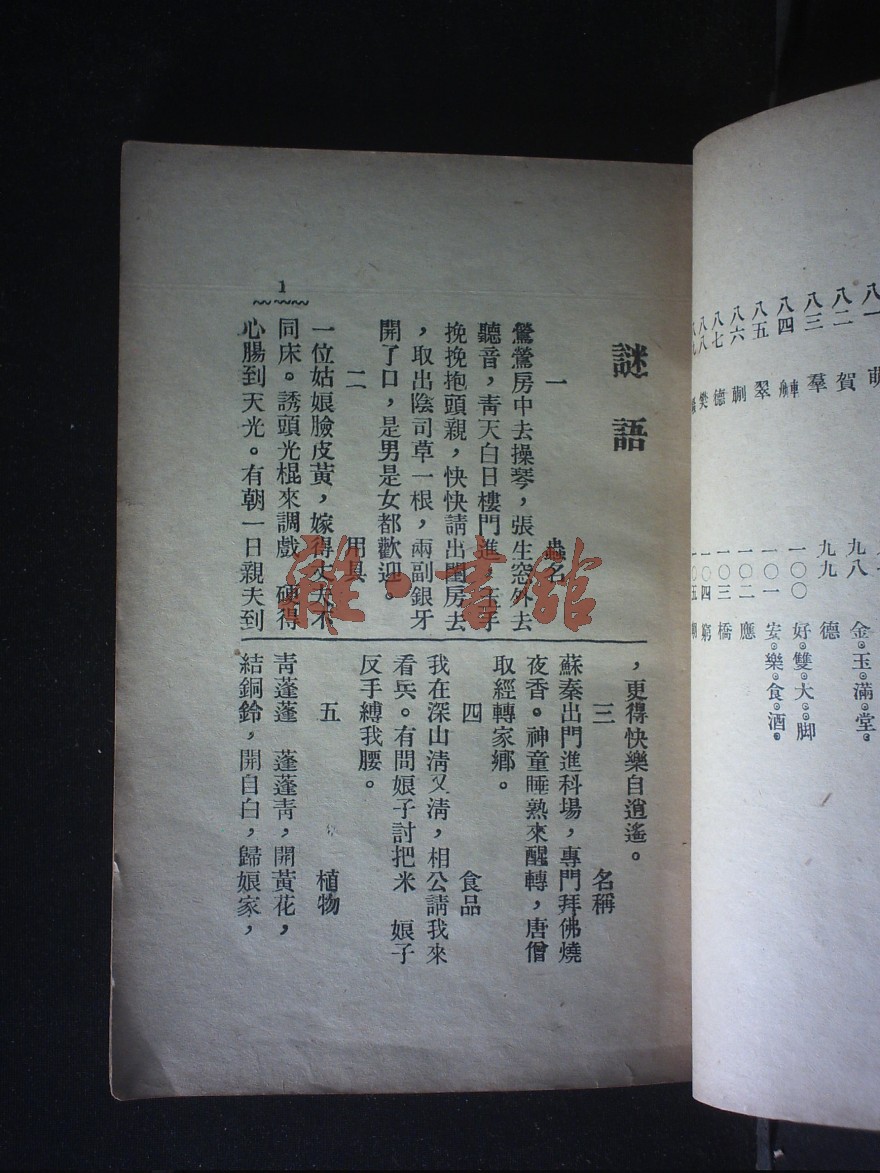 謎語
一　蟲名
鶯鶯房中去操琴，張生窓外去
聽音，靑天白日樓門進，玉手
挽挽抱頭親，快快請出閨房去
，取出陰司草一根，兩副銀牙
開了口，是男是女都歡迎。
二　用具
一位姑娘臉皮黃，嫁得丈夫不
同床。誘頭光棍來調戲　硬得
心腸到天光。有朝一日親夫到
1
，更得快樂自逍遙。
三　名稱
蘇秦出門進科場，專門拜佛燒
夜香。神童睡熟來醒轉，唐僧
取經轉家鄉。
四　食品
我在深山淸又淸，相公請我來
看兵。有問娘子討把米　娘子
反手縛我腰。
五　植物
靑蓬蓬　蓬蓬靑，開黃花，
結銅鈴，開自白，歸娘家，
雜·書館
八一　萌
八二　賀
八三　羣
八四
八五　翠
八六　蒯
八七　德
八八　樊
九八　金。玉。滿。堂。
九九　德
一〇〇　好。雙。大。脚
一〇一　安。樂。食。酒。
一〇二　應
一〇三　橋
一〇四　窮
一〇五